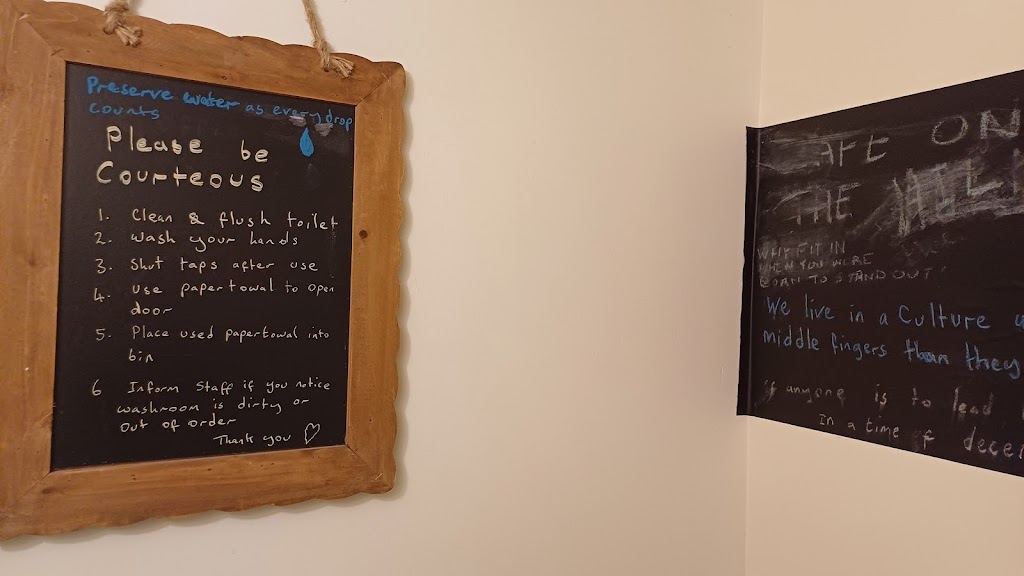 Preserve water as every drop
counts
Please be
Courteous
1. Clean & flush toilet
2. Wash your hands
3. Shut taps after use
4. Use papertowal to open
door
5. Place used papertowal into
bin
6 Inform Staff if you notice
washroom is dirty or
out of order
Thank you
ON
THE
WHY FIT IN
WHEN YOU WERE
BORN TO STAND OUT!
We live in a Culture
middle fingers than they
if anyone is to lead
In a time of